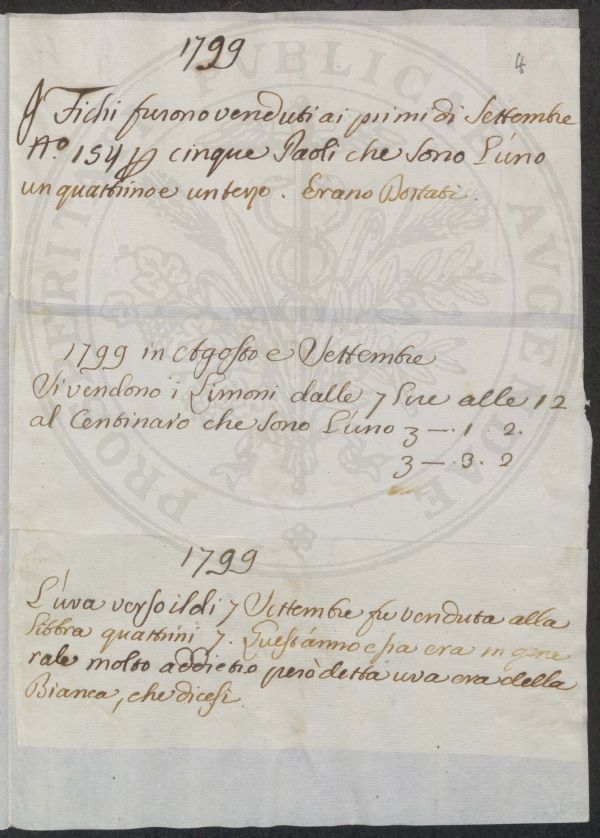 1799
4
I Fichi furono venduti ai primi di Settembre
N.o 154 p cinque Paoli che sono L'uno
un quattrino e un terzo. Erano Bottati.
1799 in Agosto e Settembre
Si vendono i Limoni dalle 7 Lire alle 12
al Centinaro che sono L'uno 3 — . 1 . 2.
3 — . 3 . 2
1799
L'uva verso il di 7 Settembre fu venduta alla
Libbra quattrini 7. Quest'anno essa era in gene
rale molto addietro però detta uva era della
Bianca, che dicesi
PROSPERITATI PUBLICAE AUGENDAE